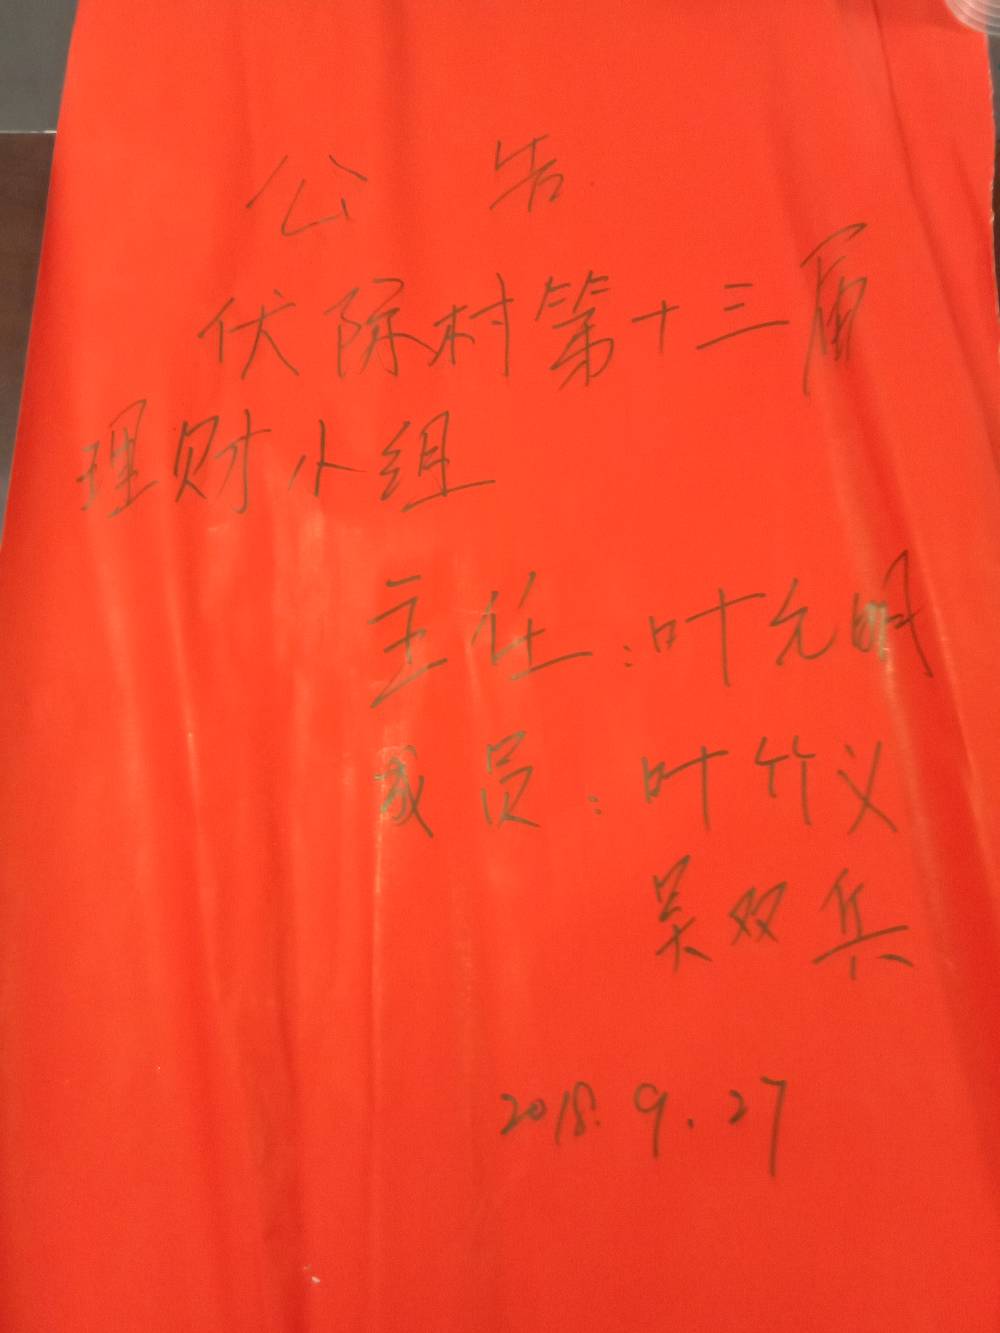 公 告
伏际村第十三届
理财小组
主任:叶允明
成员:叶竹义
吴双兵
2018.9.27